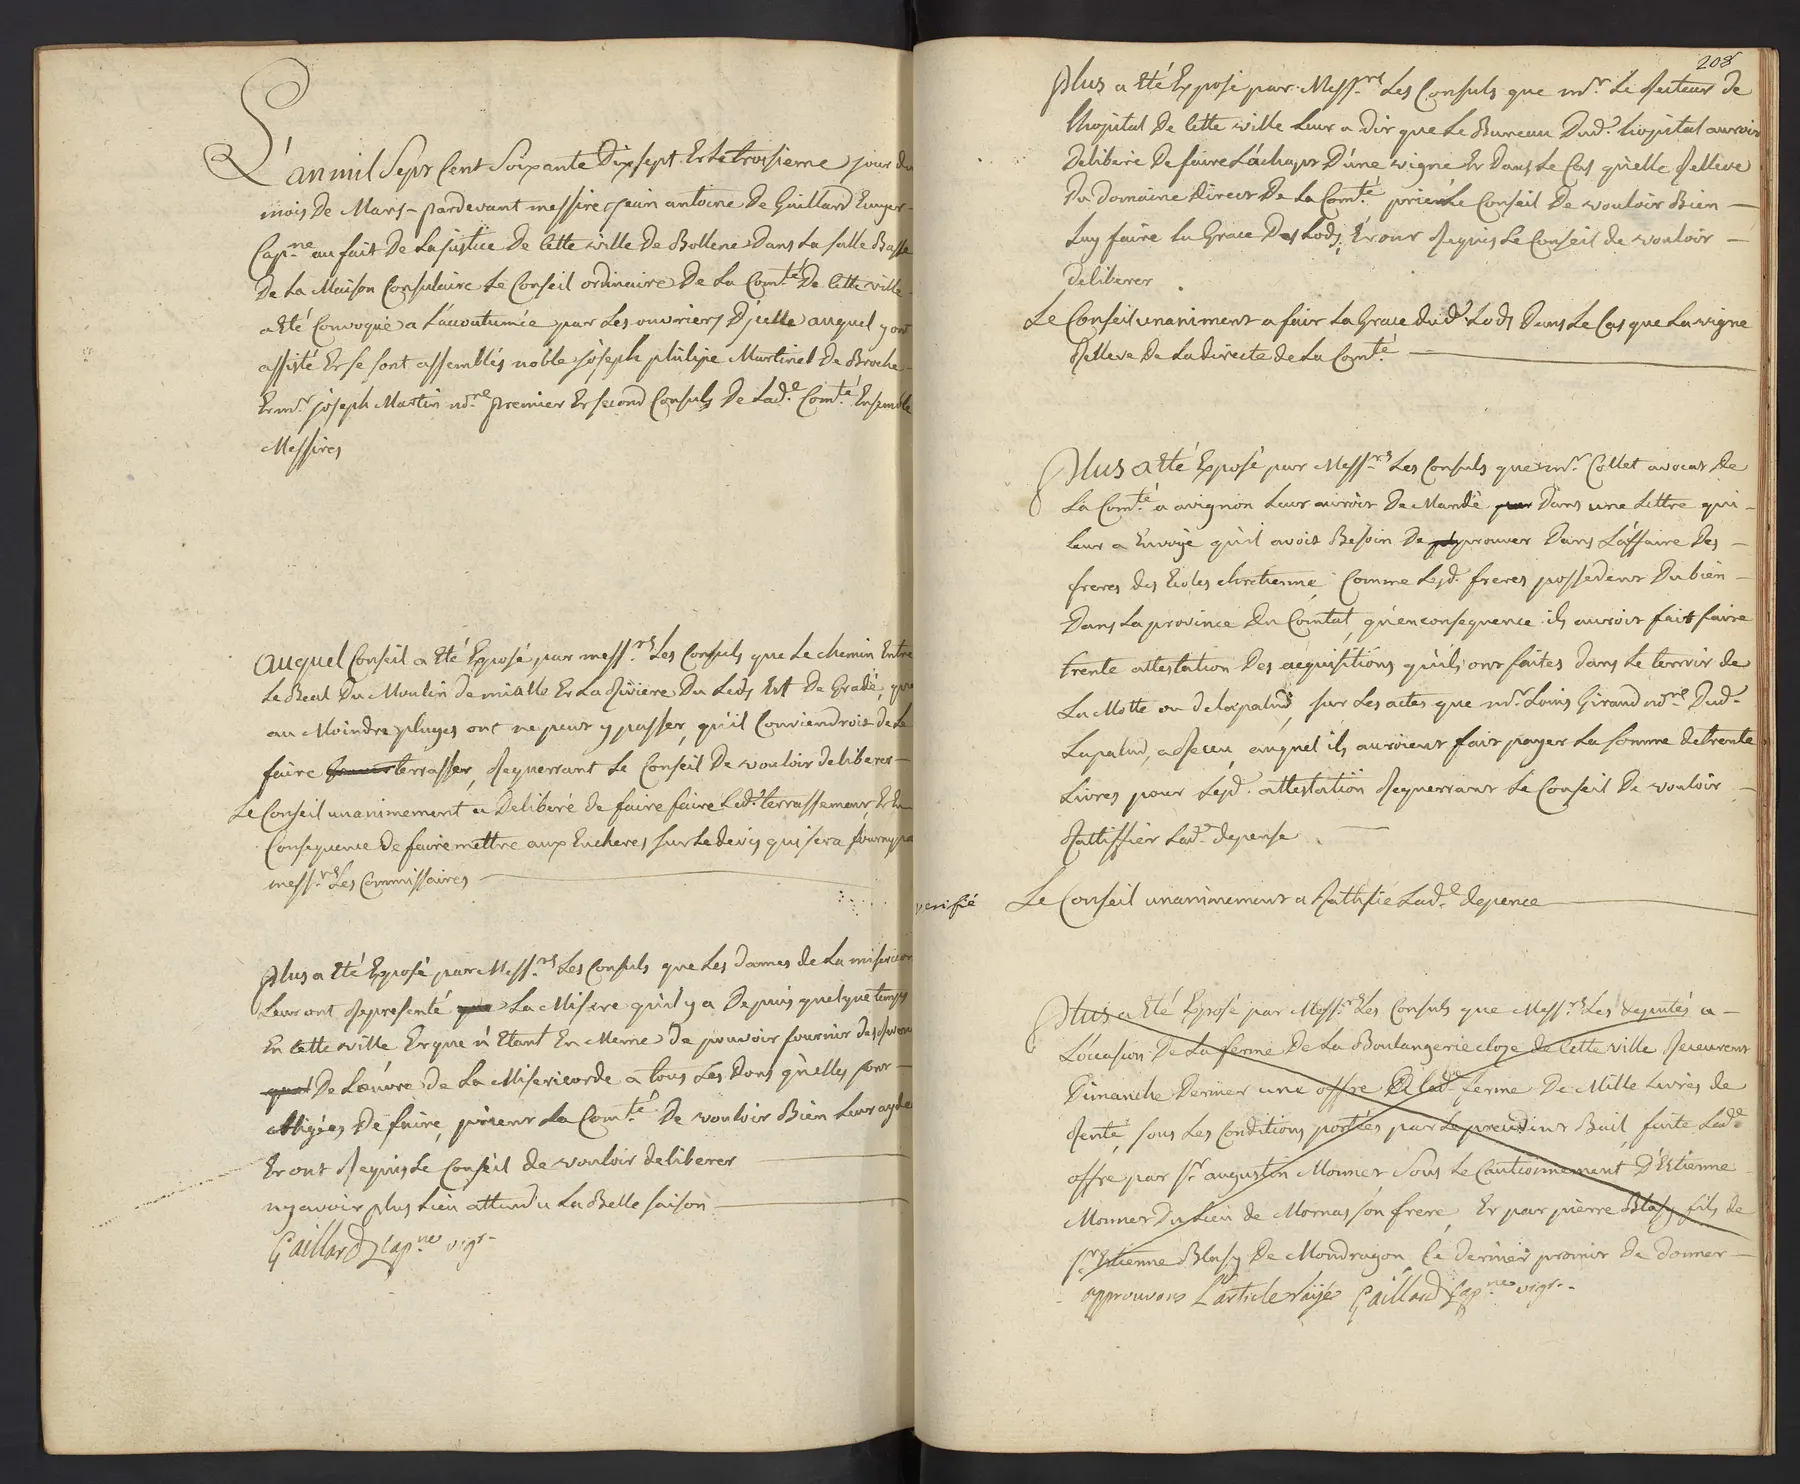 L'an mil Sept Cent Soixante Dix sept Et Le troisieme jour du
mois De Mars par devant messire jean antoine De Guillard Ecuyer
Capne au fait De La justice De Cette ville De Bollene Dans La salle Basse
De La Maison Consulaire Le Conseil ordinaire De La Comté De Cette ville
a Eté Convoqué a L'acoutumée par Les ouvriers D'jcelle auquel y ont
assisté Et se sont assemblés noble joseph philipe Martinel De Broche
Et mr joseph Martin nore premier Et second Consuls De Lade Comté Ensemble
Messires
auquel Conseil a Eté Exposé par messrs Les Consuls que Le chemin Entre
Le Beal Du Moulin de Et La Riviere Du Leds Est De Gradé, que
au Moindre pluyes ont ne peut y passer, qu'il Conviendroit de Le
faire terrasser, Requerrant Le Conseil De vouloir deliberer
Le Conseil unanimement a Deliberé de faire faire Ledt terrassement, Et En
Consequence De faire mettre aux Encheres sur Le devis qui sera fourny par
messrs Les Commissaires
plus a Eté Exposé par Messrs Les Consuls que Les dames de La misericor
Leur ont Representé que La Misere qu'il y a Depuis quelque temps
En Cette ville Et que n'Etant En Meme De pouvoir fournir des Revenus
quel De L'œuvre de La Misericorde a tous Les Dons qu'elles sont
obligées De faire, prient La Comté De vouloir Bien Leur ayder
Et ont Requis Le Conseil de vouloir deliberer
ny avoir plus Lieu attendu La Belle saison
Gaillard Capne vigr
208
plus a Eté Exposé par Messrs Les Consuls que mr Le Recteur de
l'hopital De Cette ville Leur a dit que Le Bureau Dudt hopital auroit
Deliberé De faire L'achapt D'une vigne Et Dans Le Cas qu'elle Relleve
Du Domaine Direct De La Comté prient Le Conseil De vouloir Bien
Luy faire La Grace Des Lods, Et ont Requis Le Conseil de vouloir
deliberer
Le Conseil unaniment a fait La Grace dudt Lods Dans Le Cas que La vigne
Relleve De La directe de La Comté
plus a Eté Exposé par Messrs Les Consuls que mr Collet avocat De
La Comté a avignon Leur auroit De Mandé par Dans une Lettre qui
Leur a Envoyé qu'il avoit Besoin De prouver Dans L'affaire Des
freres des Ecoles chretienne, Comme Lesd. freres possedent Du bien
Dans La province Du Comtat, qu'en consequence ils auroit fait faire
trente attestation Des aequisitions qu'ils ont faites dans Le terroir de
La Motte ou de lapalud, sur Les actes que mr Louis Giraud nore Dudt
Lapalud, a Recu, auquel ils auroient fait payer La somme de trente
Livres pour Lesd. attestation Requerrant Le Conseil De vouloir
Rattiffier Lade depense
verifié
Le Conseil unanimement a Rathifié Lade depence
plus a Eté Exposé par Messrs Les Consuls que Messrs Les deputés a
L'occasion De La ferme De La Boulangerie cloze de Cette ville Receurent
Dimanche Dernier une offre A lade ferme De Mille Livres de
Rente, sous Les Conditions portées par Le precedent Bail, faite Lade
offre par sr augustin Monnet Sous Le Cautionnement D'Estienne
Monnet Du Lieu de Mornas son frere, Et par pierre Blasy fils de
sr Etienne Blasy De Mondragon, Ce dernier promit De donner
approuvons L'article Rayé Gaillard Capne vigr